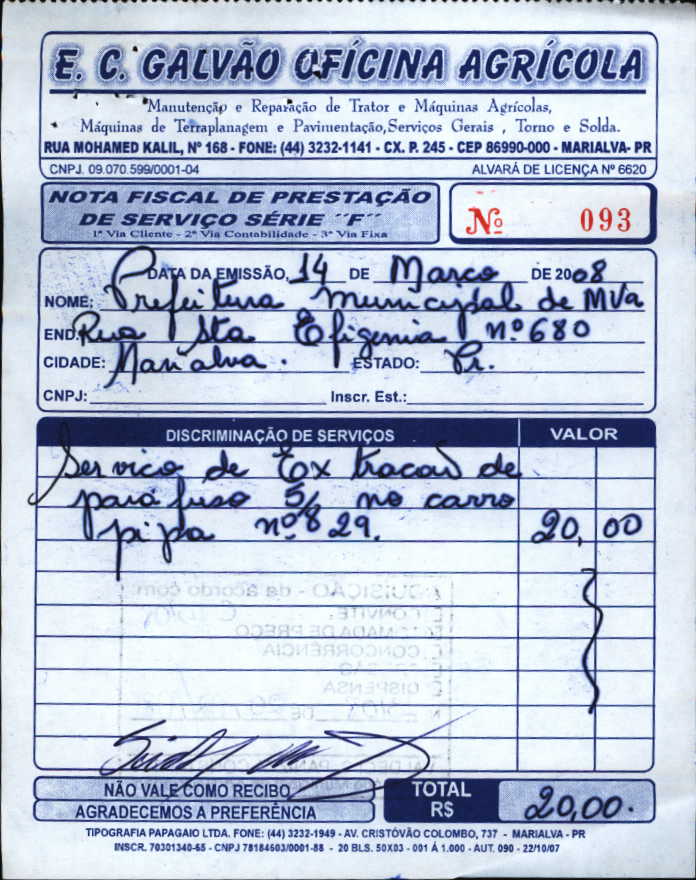 E. C. GALVÃO OFÍCINA AGRÍCOLA
Manutenção e Reparação de Trator e Máquinas Agrícolas,
Máquinas de Terraplanagem e Pavimentação,Serviços Gerais , Torno e Solda.
RUA MOHAMED KALIL, Nº 168 - FONE: (44) 3232-1141 - CX. P. 245 - CEP 86990-000 - MARIALVA- PR
CNPJ. 09.070.599/0001-04 ALVARÁ DE LICENÇA Nº 6620
NOTA FISCAL DE PRESTAÇÃO
DE SERVIÇO SÉRIE ´´F´´
1ª Via Cliente - 2ª Via Contabilidade - 3ª Via Fixa
Nº 093
DATA DA EMISSÃO, 14 DE Março DE 2008
NOME: Prefeitura Municipal de MVa
END: Rua Sta Efigenia nº 680
CIDADE: Marialva. ESTADO: Pr.
CNPJ: Inscr. Est.:
DISCRIMINAÇÃO DE SERVIÇOS VALOR
Serviço de Extração de
parafuso 5/8 no carro
pipa nº 29. 20,00
AQUISIÇÃO - de acordo com
CONVITE
TOMADA DE PREÇO
CONCORRÊNCIA
DISPENSA
NÃO VALE COMO RECIBO
AGRADECEMOS A PREFERÊNCIA
TOTAL R$ 20,00.
TIPOGRAFIA PAPAGAIO LTDA. FONE: (44) 3232-1949 - AV. CRISTÓVÃO COLOMBO, 737 - MARIALVA - PR
INSCR. 70301340-65 - CNPJ 78184603/0001-88 - 20 BLS. 50X03 - 001 Á 1.000 - AUT. 090 - 22/10/07